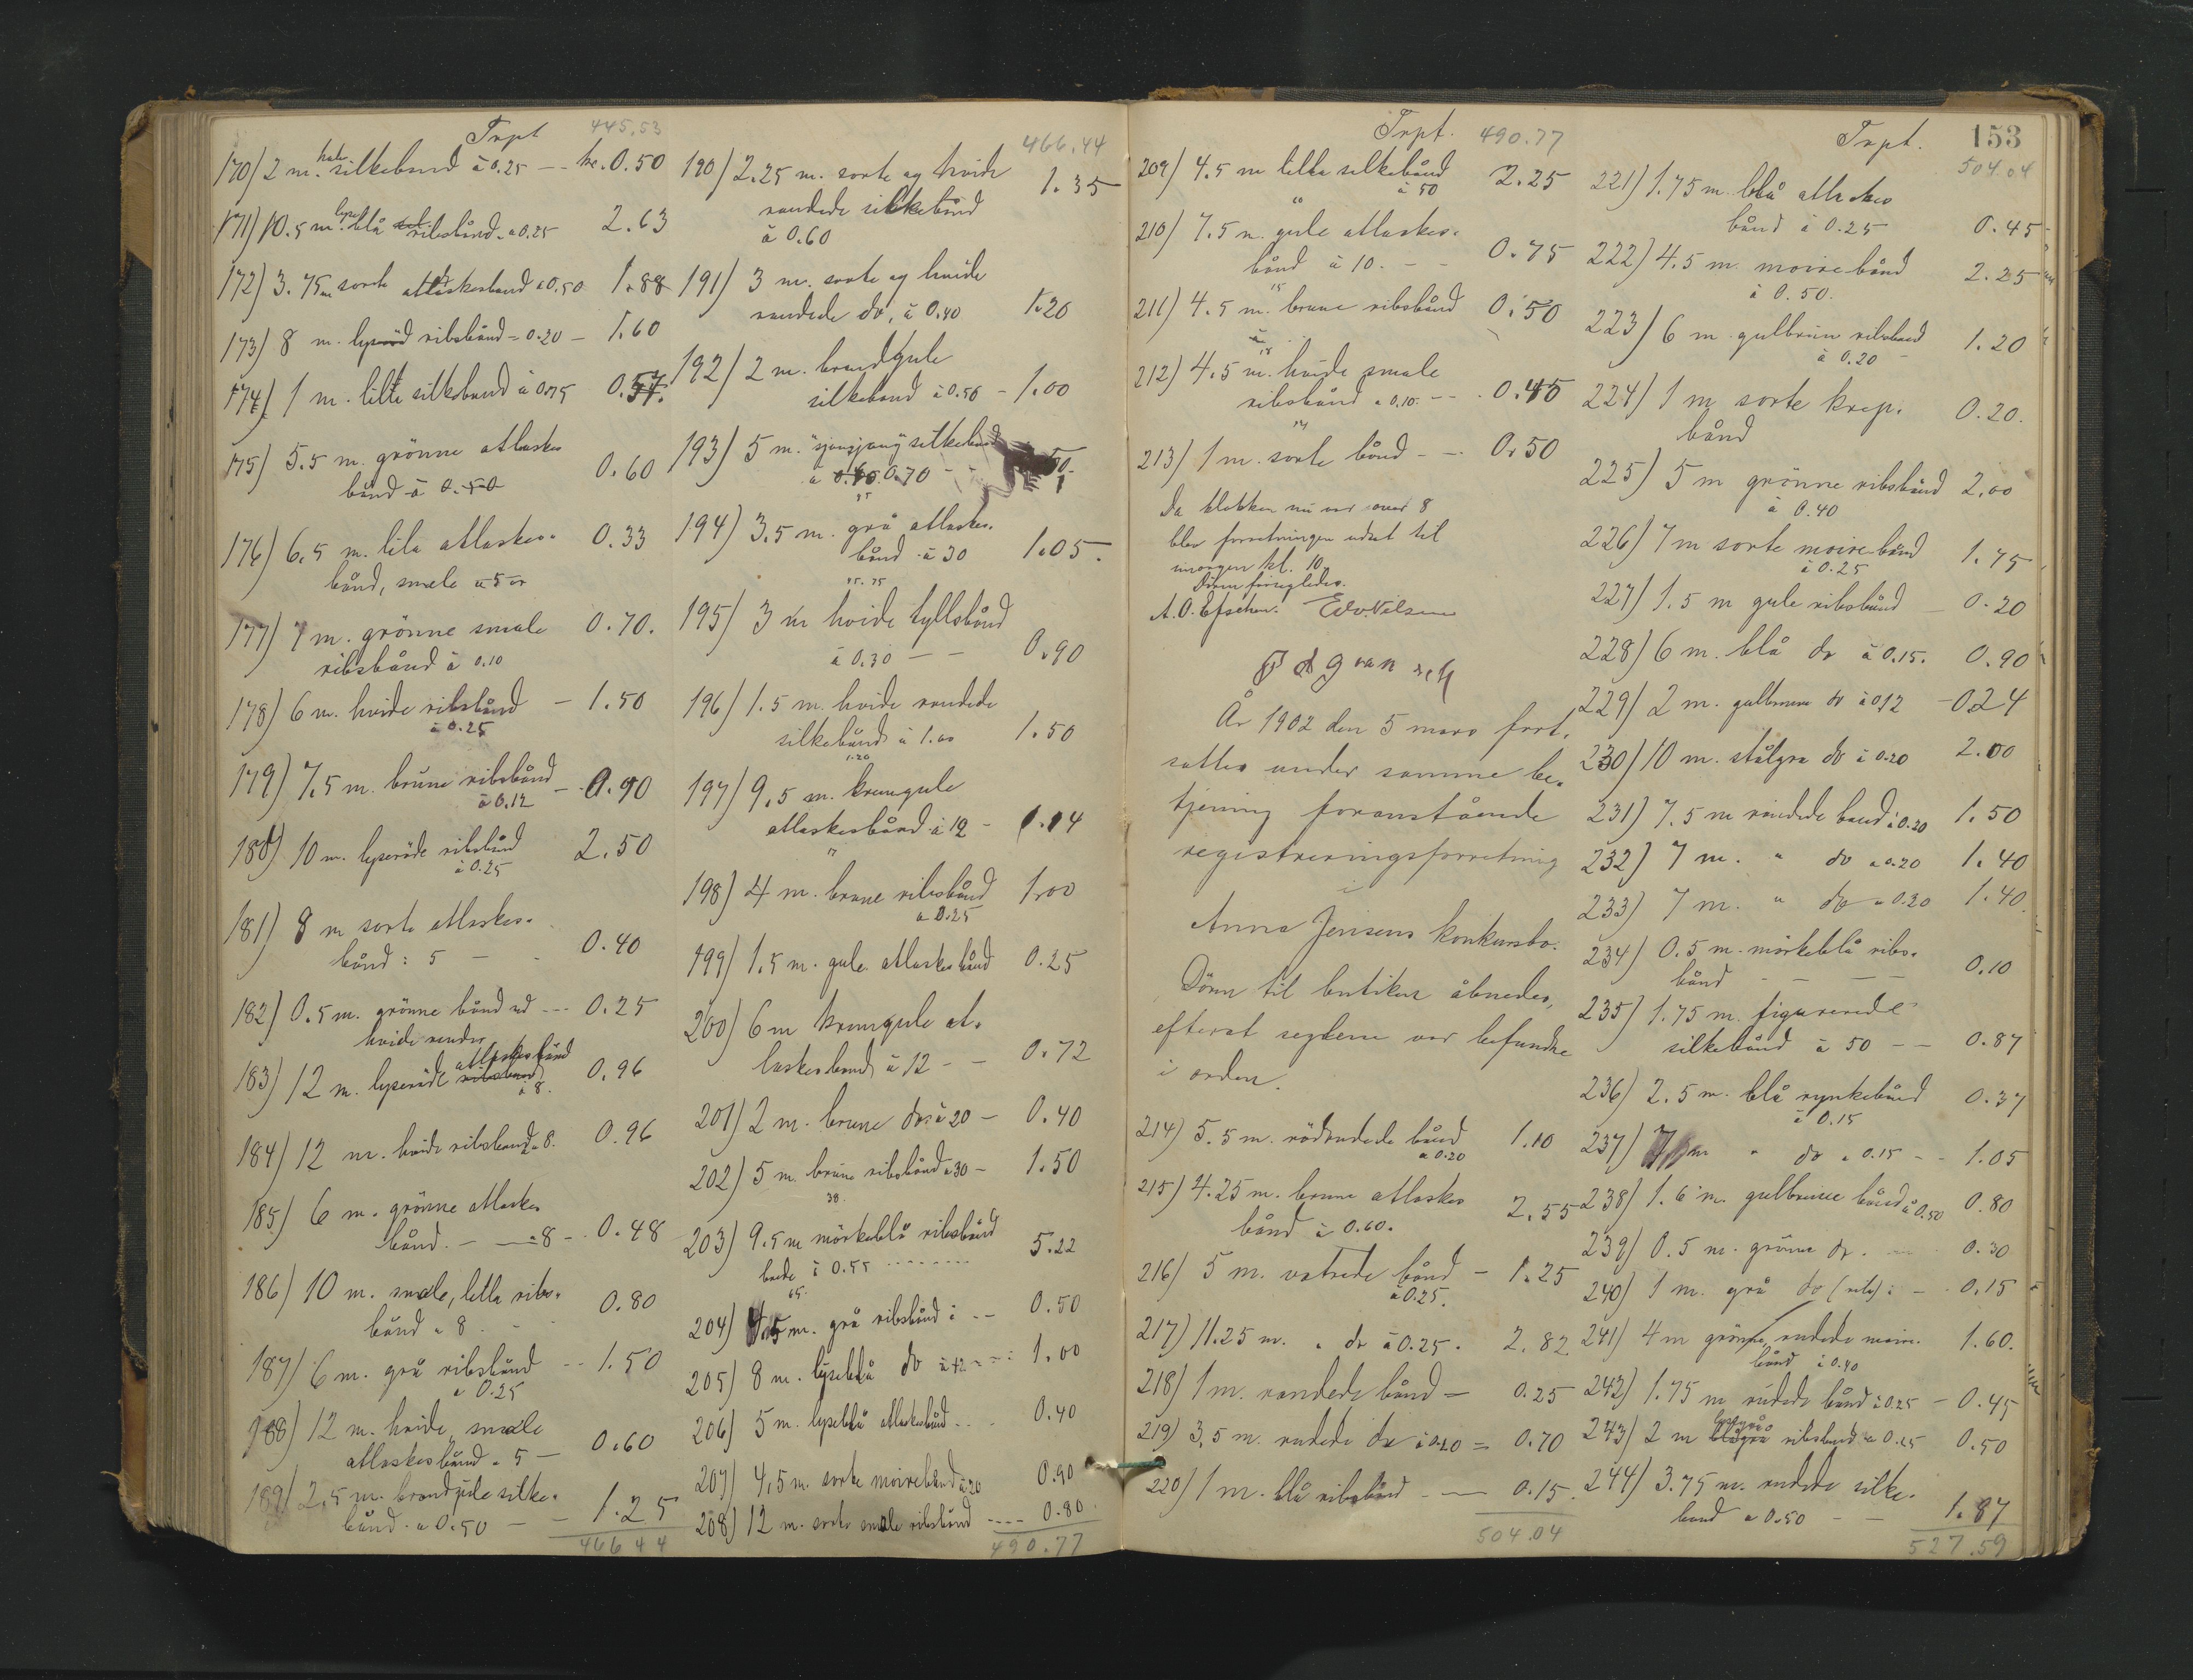 Trpt 445.53
170) 2 m. silkebånd à 0.25 -- kr. 0.50
171) 10.5 m. lyse blå ribsbånd à 0.25 2.63
172) 3.75 m sorte atlaskesbånd à 0.50 1.88
173) 8 m. lyseröd ribsbånd à 0.20 - 1.60
174) 1 m. lilla silkebånd à 0.75
175) 5.5 m. grönne atlaskes
bånd à 0.60
176) 6.5 m. lila atlaskes- 0.33
bånd, smale à 5 ör
177) 7 m. grönne smale 0.70.
ribsbånd à 0.10
178) 6 m. hvide ribsbånd - 1.50
à 0.25
179) 7.5 m. brune ribsbånd - 0.90
à 0.12
180) 10 m. lyseröde ribsbånd 2.50
à 0.25
181) 8 m sorte atlaskes-
bånd à 5 - 0.40
182) 0.5 m. grönne bånd md --- 0.25
hvide render
atlaskesbånd
183) 12 m. lyseröde ribsbånd 0.96
à 8.
184) 12 m. hvide ribsbånd à 8. 0.96
185) 6 m. grönne atlaskes
bånd. - à 8 - 0.48
186) 10 m. smale, lilla ribs-
bånd à 8 0.80
187) 6 m. grå ribsbånd -- 1.50
à 0.25
188) 12 m. hvide, smale
atlaskesbånd à 5 - 0.60
189) 2.5 m. brandgule silke-
bånd à 0.50 - - 1.25
466.44
466.44
190) 2.25 m. sorte og hvide 1.35
randede silkebånd
à 0.60
191) 3 m. sorte og hvide
randede do, à 0.40 1.20
192) 2 m. brandgule
silkebånd à 0.50 - 1.00
193) 5 m. "sjangjang" silkebånd
à 0.70 - -
194) 3.5 m. grå atlaskes-
bånd à 30 1.05.
195) 3 m hvide tyllsbånd
à 0.30 - - 0.90
196) 1.5 m. hvide randede
silkebånd à 1.00 1.50
1.20
197) 9.5 m. kremgule
atlaskesbånd à 12 - 1.14
198) 4 m. brune ribsbånd 1.00
à 0.25
199) 1.5 m. gule atlaskesbånd 0.25
200) 6 m kremgule at-
laskesbånd à 12 - - 0.72
201) 2 m. brune do. à 20 - 0.40
202) 5 m. brune ribsbånd à 30 - 1.50
38.
203) 9.5 m mörkeblå ribsbånd
brede à 0.55 5.22
204) m. grå ribsbånd à -- 0.50
205) 8 m. lyseblå do à 12 1.00
206) 5 m. lyseblå atlaskesbånd -- 0.40
207) 4,5 m. sorte moirebånd à 20 0.90
208) 12 m. sorte smale ribsbånd ---- 0.80
490.77
Trpt. 490.77
209) 4.5 m lilla silkebånd 2.25
à 50
210) 7.5 m. gule atlaskes-
bånd à 10. - - 0.75
211) 4.5 m. brune ribsbånd 0.50
212) 4.5 m. hvide smale
ribsbånd à 0.10 -- 0.45
213) 1 m. sorte bånd -- 0.50
Da klokken nu var over 8
blev forretningen udsat til
imorgen kl. 10.
Dören forsegledes.
Edv. Nilsen
År 1902 den 5 mars fort-
sattes under samme be-
tjening foranstående
registreringsforretning
i
Anna Jensens konkursbo.
Dören til butiken åbnedes,
efterat seglene var befundne
i orden.
214) 5.5 m. rödrudede bånd 1.10
à 0.20
215) 4.25 m. brune atlaskes
bånd à 0.60. 2.55
216) 5 m. vatrede bånd - 1.25
à 0.25.
217) 11.25 m. " do à 0.25. 2.82
218) 1 m. randede bånd - 0.25
219) 3,5 m. rudede do à 0.20 = 0.70
220) 1 m. blå ribsbånd - - 0.15.
504.04
Trpt. 153
504.04
221) 1.75 m. blå atlaskes
bånd à 0.25 0.45
222) 4.5 m. moirebånd 2.25
à 0.50.
223) 6 m. gulbrun ribsbånd 1.20
à 0.20
224) 1 m sorte krep- 0.20.
bånd
225) 5 m grönne ribsbånd 2.00
à 0.40
226) 7 m sorte moirebånd 1.75
à 0.25
227) 1.5 m gule ribsbånd - 0.20
228) 6 m. blå do à 0.15. 0.90
229) 2 m. gulbrune do à 0.12 - 0.24
230) 10 m. stålgra do à 0.20 2.00
231) 7.5 m rudede bånd à 0.20 1.50
232) 7 m. " do à 0.20 1.40
233) 7 m. " do à 0.20 1.40
234) 0.5 m. mörkeblå ribs-
bånd - - - 0.10
235) 1.75 m. figurerede
silkebånd à 50 - - 0.87
236) 2.5 m. blå rynkebånd 0.37
à 0.15
237) 7 m " do à 0.15 -- 1.05
238) 1.6 m. gulbrune bånd à 0.50 0.80
239) 0.5 m. grönne do. 0.30
240) 1 m. grå do (ribs) : - 0.15
241) 4 m grönne, rudede moire- 1.60.
bånd à 0.40
242) 1.75 m rudede bånd à 0.25 - 0.45
243) 2 m blågrå ribsbånd à 0.25 0.50
244) 3.75 m. rudede silke-
bånd à 0.50 - - 1.87
527.59